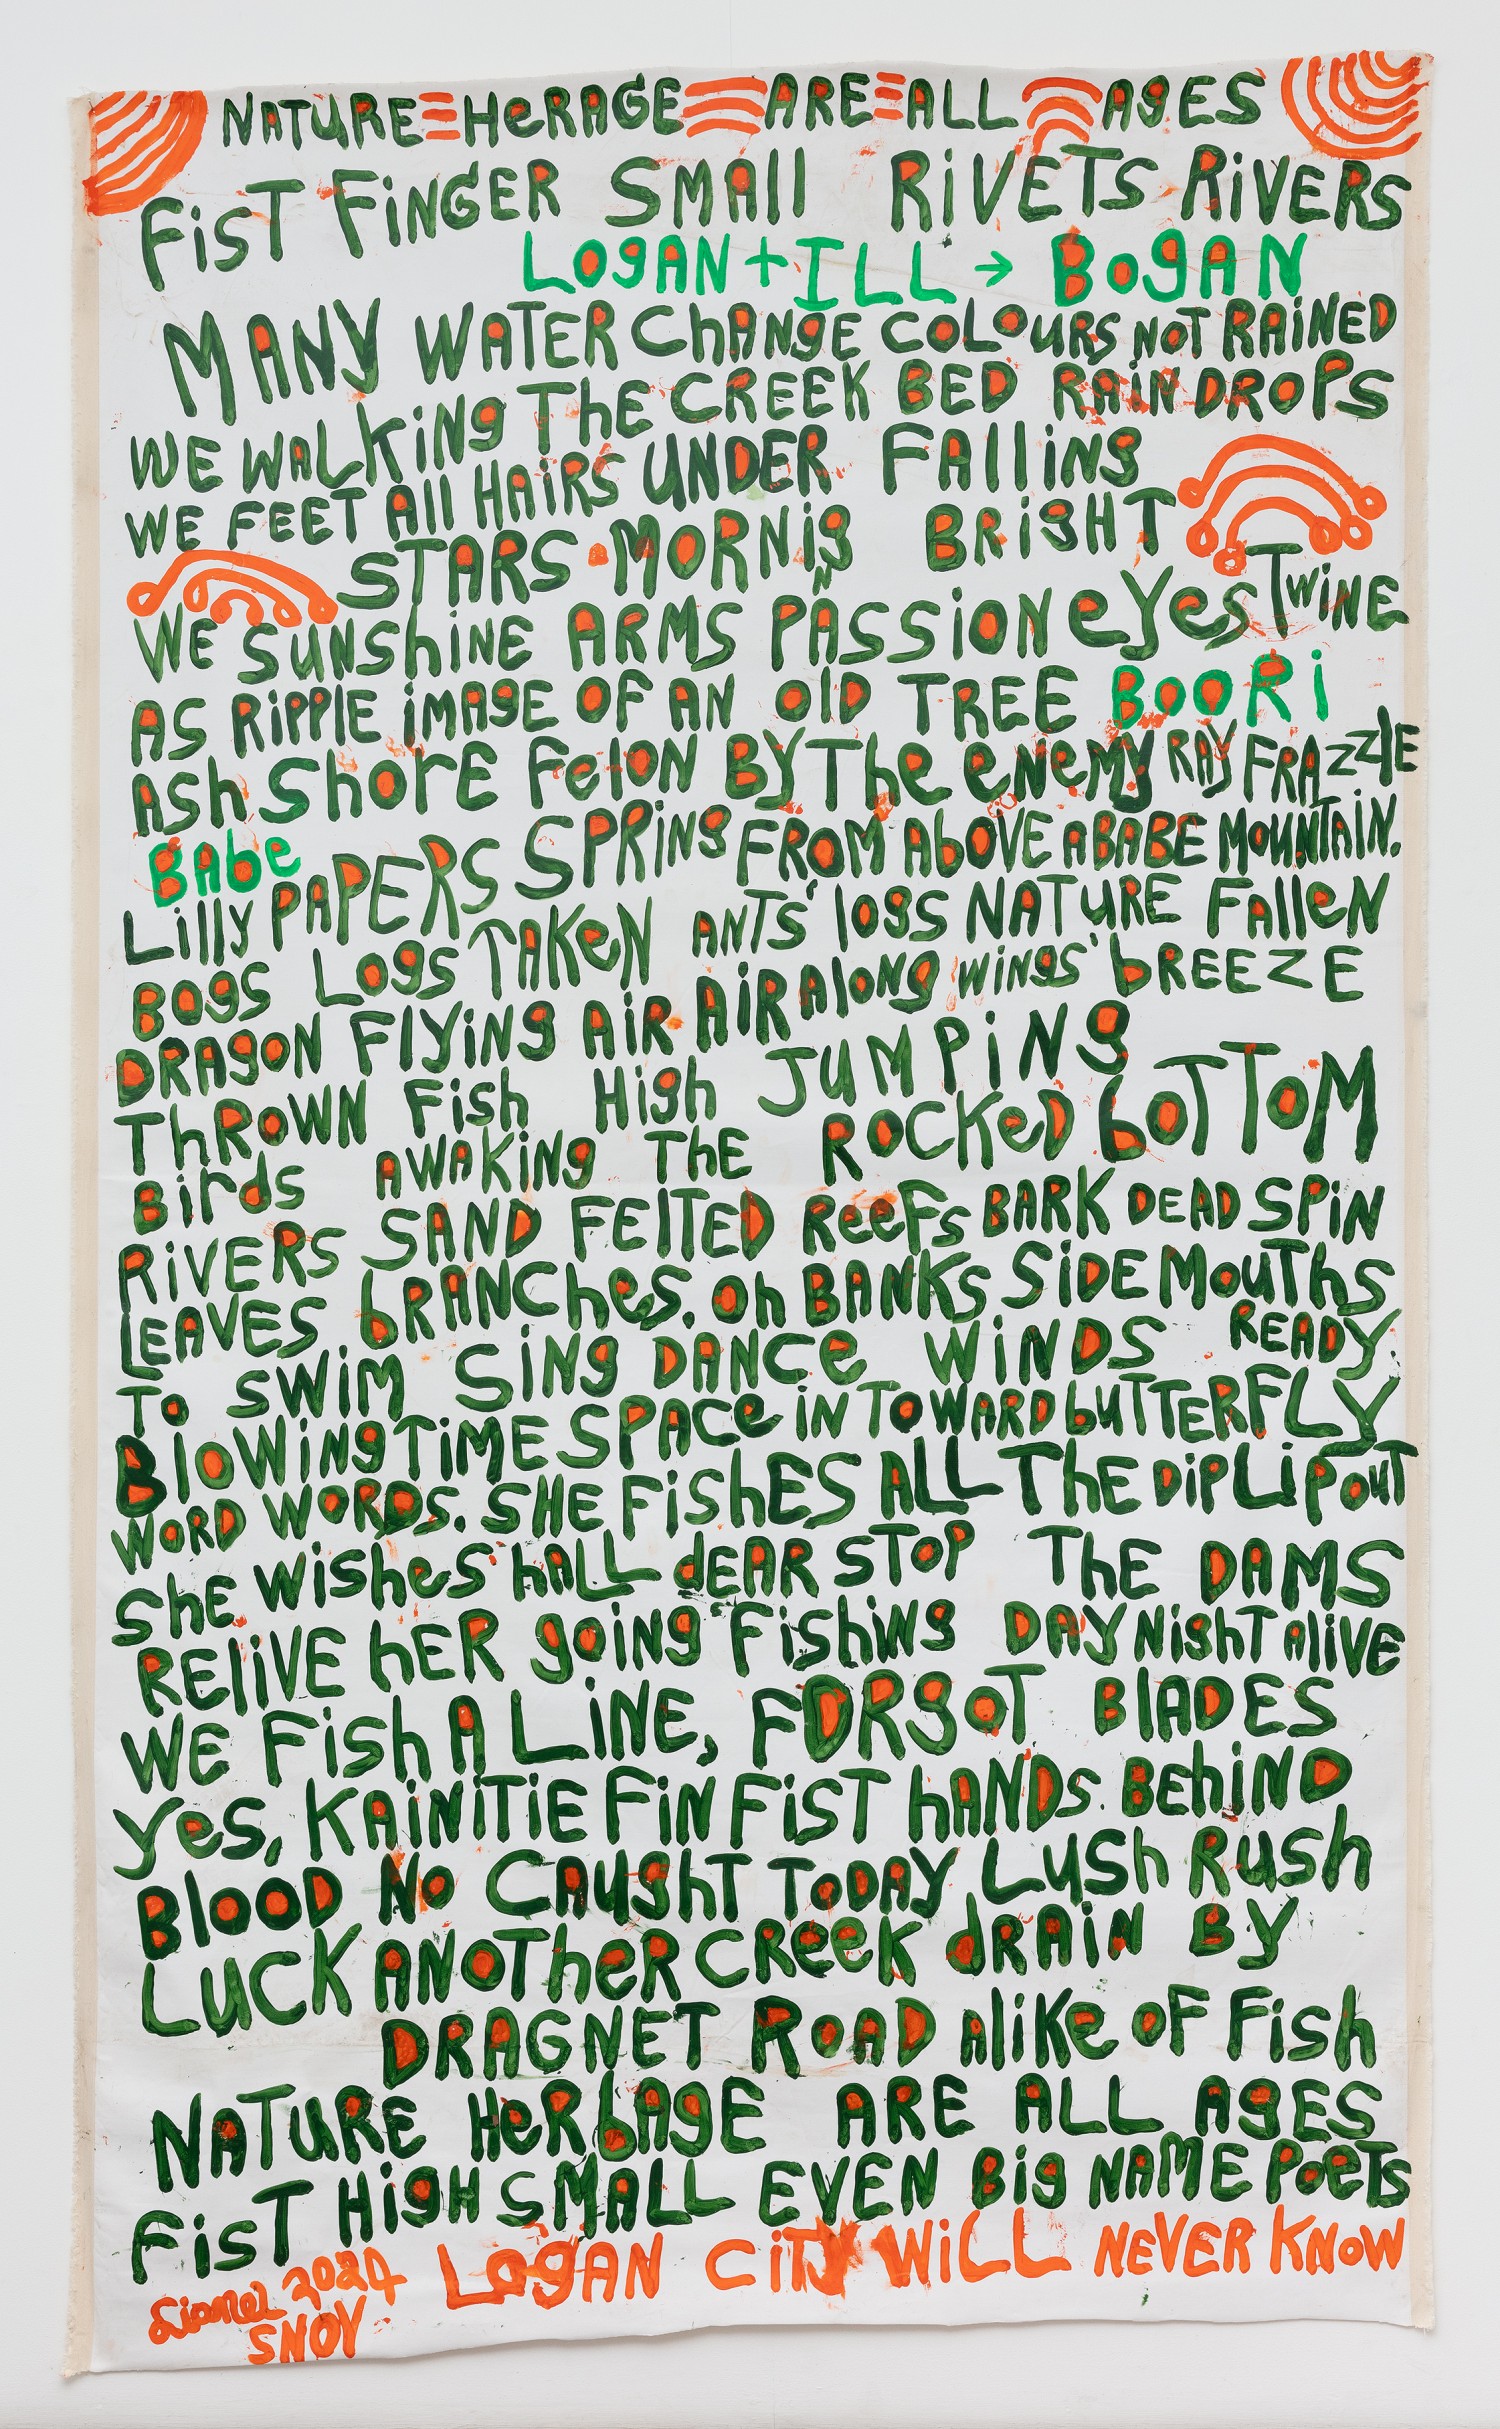 NATURE HeRAGE ARE ALL AgES
FisT FiNGER SMAll RiVETS RiVERS
LOgAN + ILL → BogAN
MANY WATER ChANgE COLOURS NOT RAINED
WE WALKiNg ThE CREEK BED RAiNDROPS
WE FEET All HAiRS UNDER FAlliNg
STARS • MORNig BRigHT
N
WE SUNShiNE ARMS PASSiON eYes TWiNE
AS RiPPlE iMAgE OF AN OlD TREE BOORi
ASh ShOrE FelON BY The eNeMY RAY FRAzzlE
BAbe
Lilly PAPERS SPRiNg FROM AbOVE A BABE MOUNTAiN.
BOgS LOgS TAKeN ANTS' lOgS NATURE FAlleN
DRAgON FlYiNg AiR AiR AlONg WiNgS' bREEZE
ThROWN Fish High JUMPiNg
Birds AWAKiNg ThE ROCKeD bOTTOM
RiVERS SAND FElTED ReeFs BARK DEAD SPiN
LEAVES bRANChes. Oh BANKS SiDE MOuThS
To SWiM SiNg DANCe WiNDS READY
BlOWiNg TiME SPACe iN TOWARD bUTTERFLY
WORD WORDS. SHE FiShES ALL ThE DiP LiP OUT
ShE WiShes hALL dEAR STOP ThE DAMS
RElIVE hER goiNg FiShiNg DAY NighT AliVE
WE FiSh A LiNE, FORgOT BlADES
Yes, KAiNiTiE FiN FiST hANDs. BEhiND
BlOOD No CAughT TODAY LUSh RuSh
LUCK ANOTheR CReeK dRAiN BY
DRAGNET ROAD AliKe OF FiSh
NATURE HeRbAgE ARE ALL AgES
FisT HigH SMALL EVEN Big NAME POeTS
LOgAN CiTY WiLL NEVER KNOW
Lionel 2024
SNOY